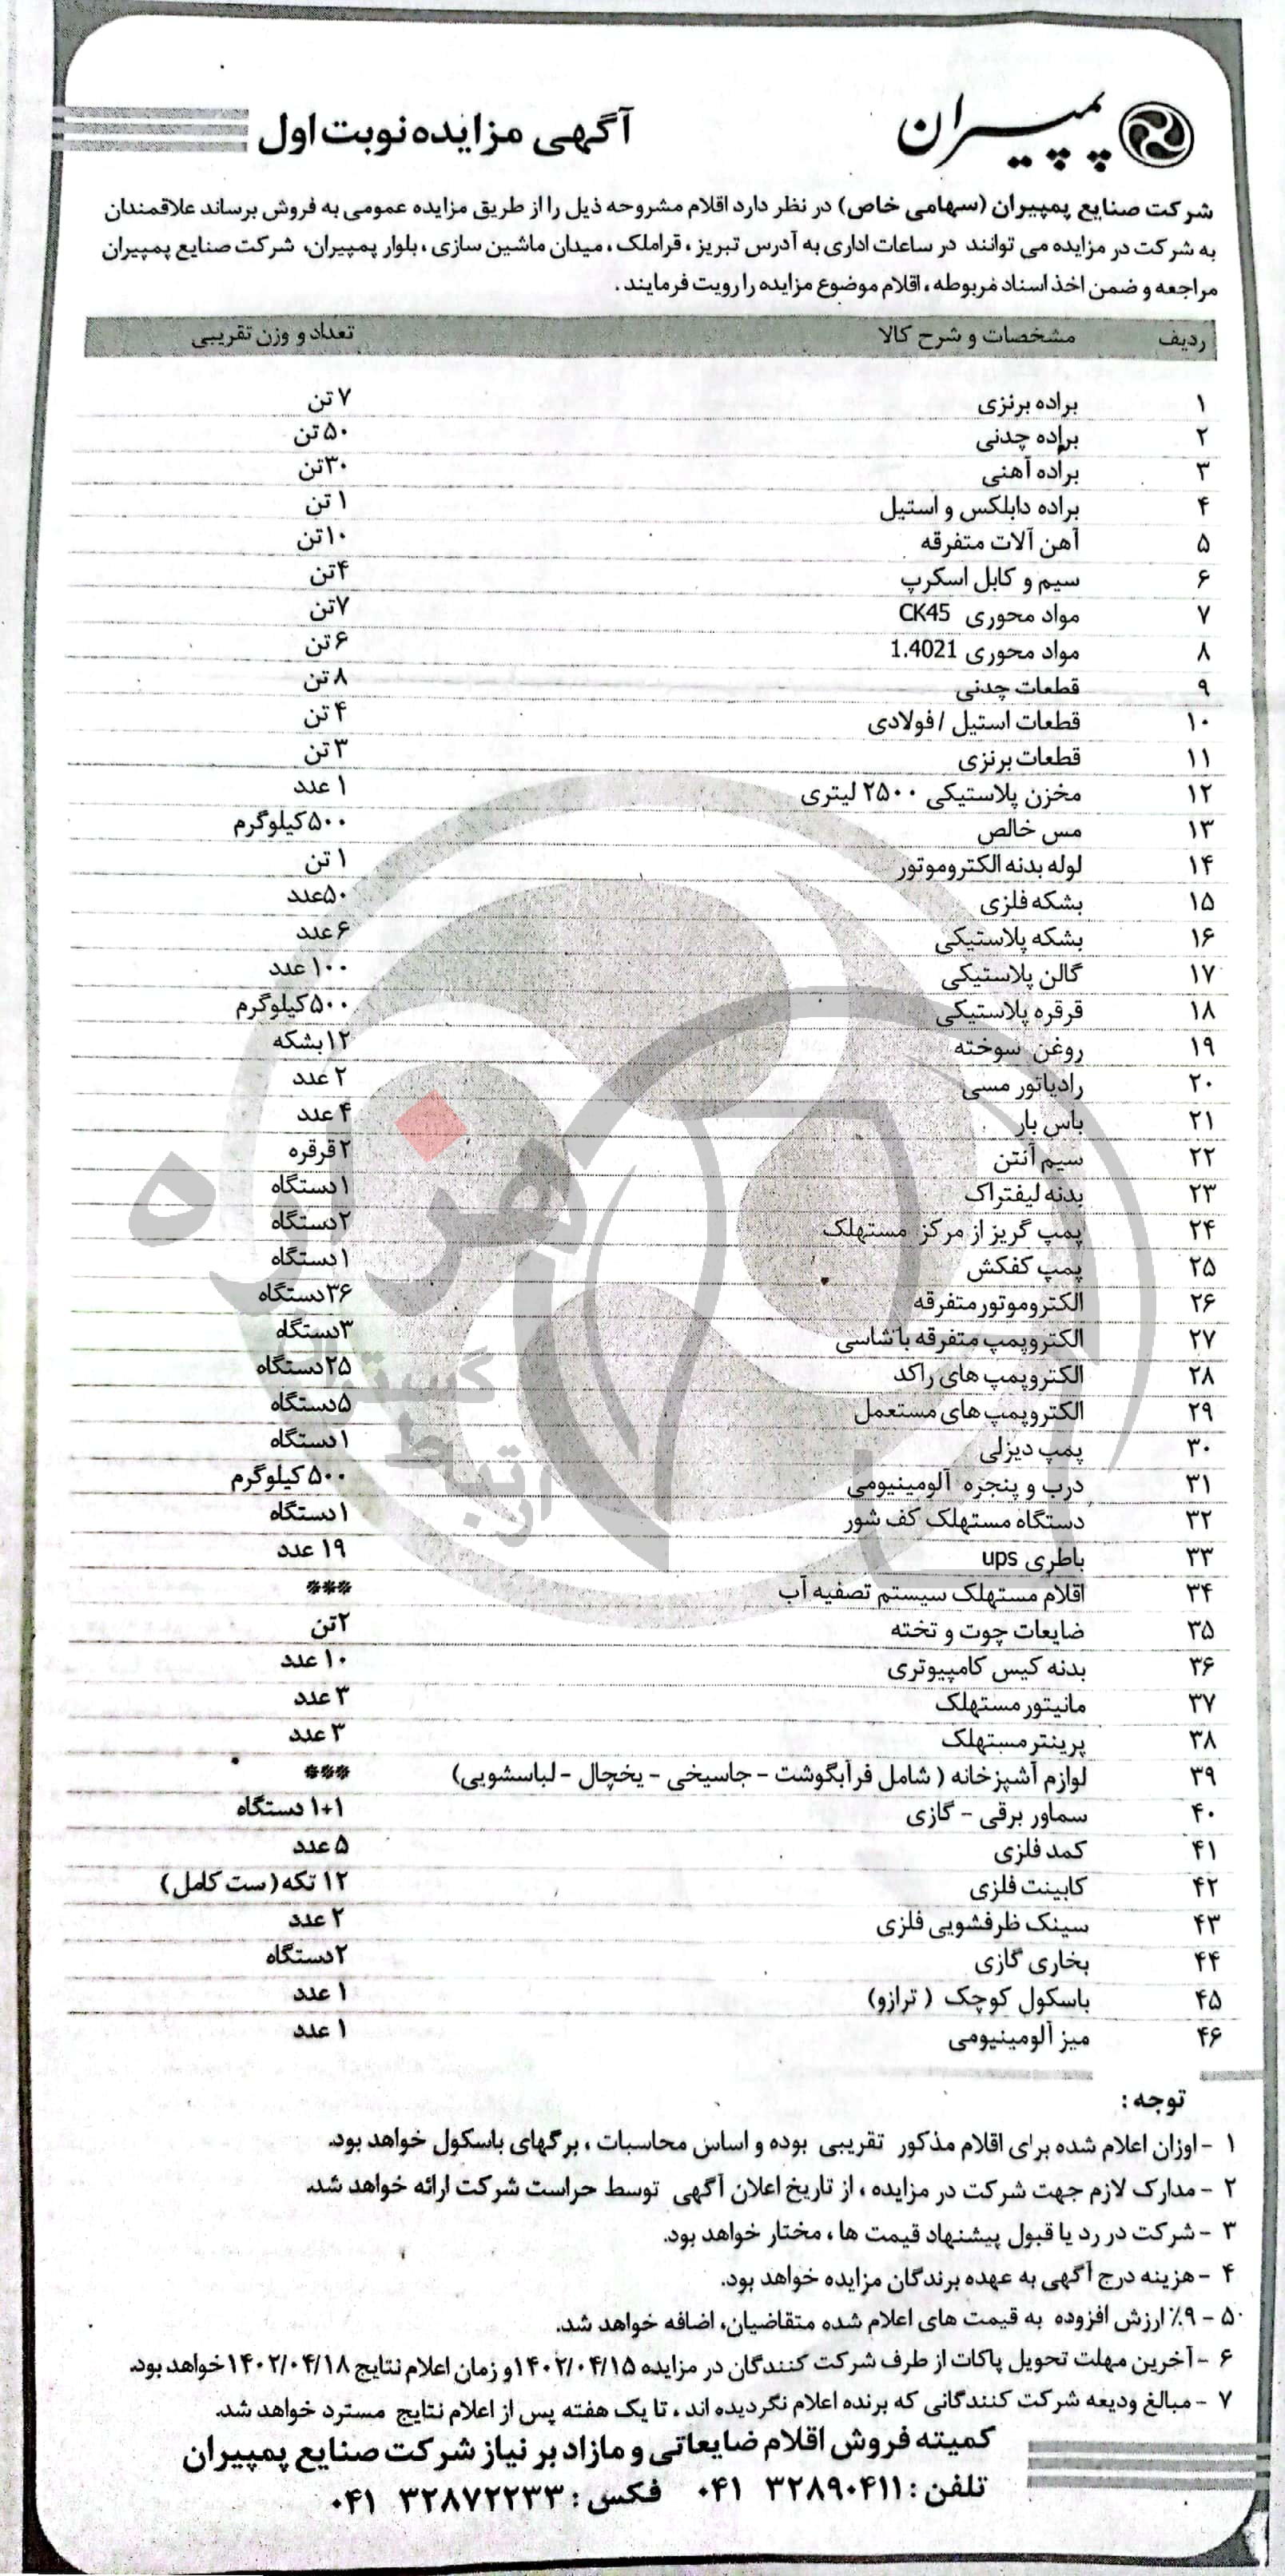 پمپیران
آگهی مزایده نوبت اول
شرکت صنایع پمپیران (سهامی خاص) در نظر دارد اقلام مشروحه ذیل را از طریق مزایده عمومی به فروش برساند علاقمندان
به شرکت در مزایده می توانند در ساعات اداری به آدرس تبریز، قراملک، میدان ماشین سازی، بلوار پمپیران، شرکت صنایع پمپیران
مراجعه و ضمن اخذ اسناد مربوطه، اقلام موضوع مزایده را رویت فرمایند.
ردیف مشخصات و شرح کالا تعداد و وزن تقریبی
۱ براده برنزی ۷ تن
۲ براده چدنی ۵۰ تن
۳ براده آهنی ۳۰ تن
۴ براده دابلکس و استیل ۱ تن
۵ آهن آلات متفرقه ۱۰ تن
۶ سیم و کابل اسکرپ ۴ تن
۷ مواد محوری CK45 ۷ تن
۸ مواد محوری 1.4021 ۶ تن
۹ قطعات چدنی ۸ تن
۱۰ قطعات استیل / فولادی ۴ تن
۱۱ قطعات برنزی ۳ تن
۱۲ مخزن پلاستیکی ۲۵۰۰ لیتری ۱ عدد
۱۳ مس خالص ۵۰۰ کیلوگرم
۱۴ لوله بدنه الکتروموتور ۱ تن
۱۵ بشکه فلزی ۵۰ عدد
۱۶ بشکه پلاستیکی ۶ عدد
۱۷ گالن پلاستیکی ۱۰۰ عدد
۱۸ قرقره پلاستیکی ۵۰۰ کیلوگرم
۱۹ روغن سوخته ۱۲ بشکه
۲۰ رادیاتور مسی ۲ عدد
۲۱ باس بار ۴ عدد
۲۲ سیم آنتن ۲ قرقره
۲۳ بدنه لیفتراک ۱ دستگاه
۲۴ پمپ گریز از مرکز مستهلک ۲ دستگاه
۲۵ پمپ کفکش ۱ دستگاه
۲۶ الکتروموتور متفرقه ۳۶ دستگاه
۲۷ الکتروپمپ متفرقه با شاسی ۳ دستگاه
۲۸ الکتروپمپ های راکد ۲۵ دستگاه
۲۹ الکتروپمپ های مستعمل ۵ دستگاه
۳۰ پمپ دیزلی ۱ دستگاه
۳۱ درب و پنجره آلومینیومی ۵۰۰ کیلوگرم
۳۲ دستگاه مستهلک کف شور ۱ دستگاه
۳۳ باطری ups ۱۹ عدد
۳۴ اقلام مستهلک سیستم تصفیه آب ***
۳۵ ضایعات چوت و تخته ۲ تن
۳۶ بدنه کیس کامپیوتری ۱۰ عدد
۳۷ مانیتور مستهلک ۳ عدد
۳۸ پرینتر مستهلک ۳ عدد
۳۹ لوازم آشپزخانه (شامل فرآبگوشت - جاسیخی - یخچال - لباسشویی) ***
۴۰ سماور برقی - گازی ۱+۱ دستگاه
۴۱ کمد فلزی ۵ عدد
۴۲ کابینت فلزی ۱۲ تکه (ست کامل)
۴۳ سینک ظرفشویی فلزی ۲ عدد
۴۴ بخاری گازی ۲ دستگاه
۴۵ باسکول کوچک (ترازو) ۱ عدد
۴۶ میز آلومینیومی ۱ عدد
هزاره
گستر
ارتباط
توجه:
۱ - اوزان اعلام شده برای اقلام مذکور تقریبی بوده و اساس محاسبات، برگهای باسکول خواهد بود.
۲ - مدارک لازم جهت شرکت در مزایده، از تاریخ اعلان آگهی توسط حراست شرکت ارائه خواهد شد.
۳ - شرکت در رد یا قبول پیشنهاد قیمت ها، مختار خواهد بود.
۴ - هزینه درج آگهی به عهده برندگان مزایده خواهد بود.
۵ - ۹٪ ارزش افزوده به قیمت های اعلام شده متقاضیان، اضافه خواهد شد.
۶ - آخرین مهلت تحویل پاکات از طرف شرکت کنندگان در مزایده ۱۴۰۲/۰۴/۱۵ و زمان اعلام نتایج ۱۴۰۲/۰۴/۱۸ خواهد بود.
۷ - مبالغ ودیعه شرکت کنندگانی که برنده اعلام نگردیده اند، تا یک هفته پس از اعلام نتایج مسترد خواهد شد.
کمیته فروش اقلام ضایعاتی و مازاد بر نیاز شرکت صنایع پمپیران
تلفن: ۳۲۸۹۰۴۱۱ ۰۴۱ فکس: ۳۲۸۷۲۲۳۳ ۰۴۱